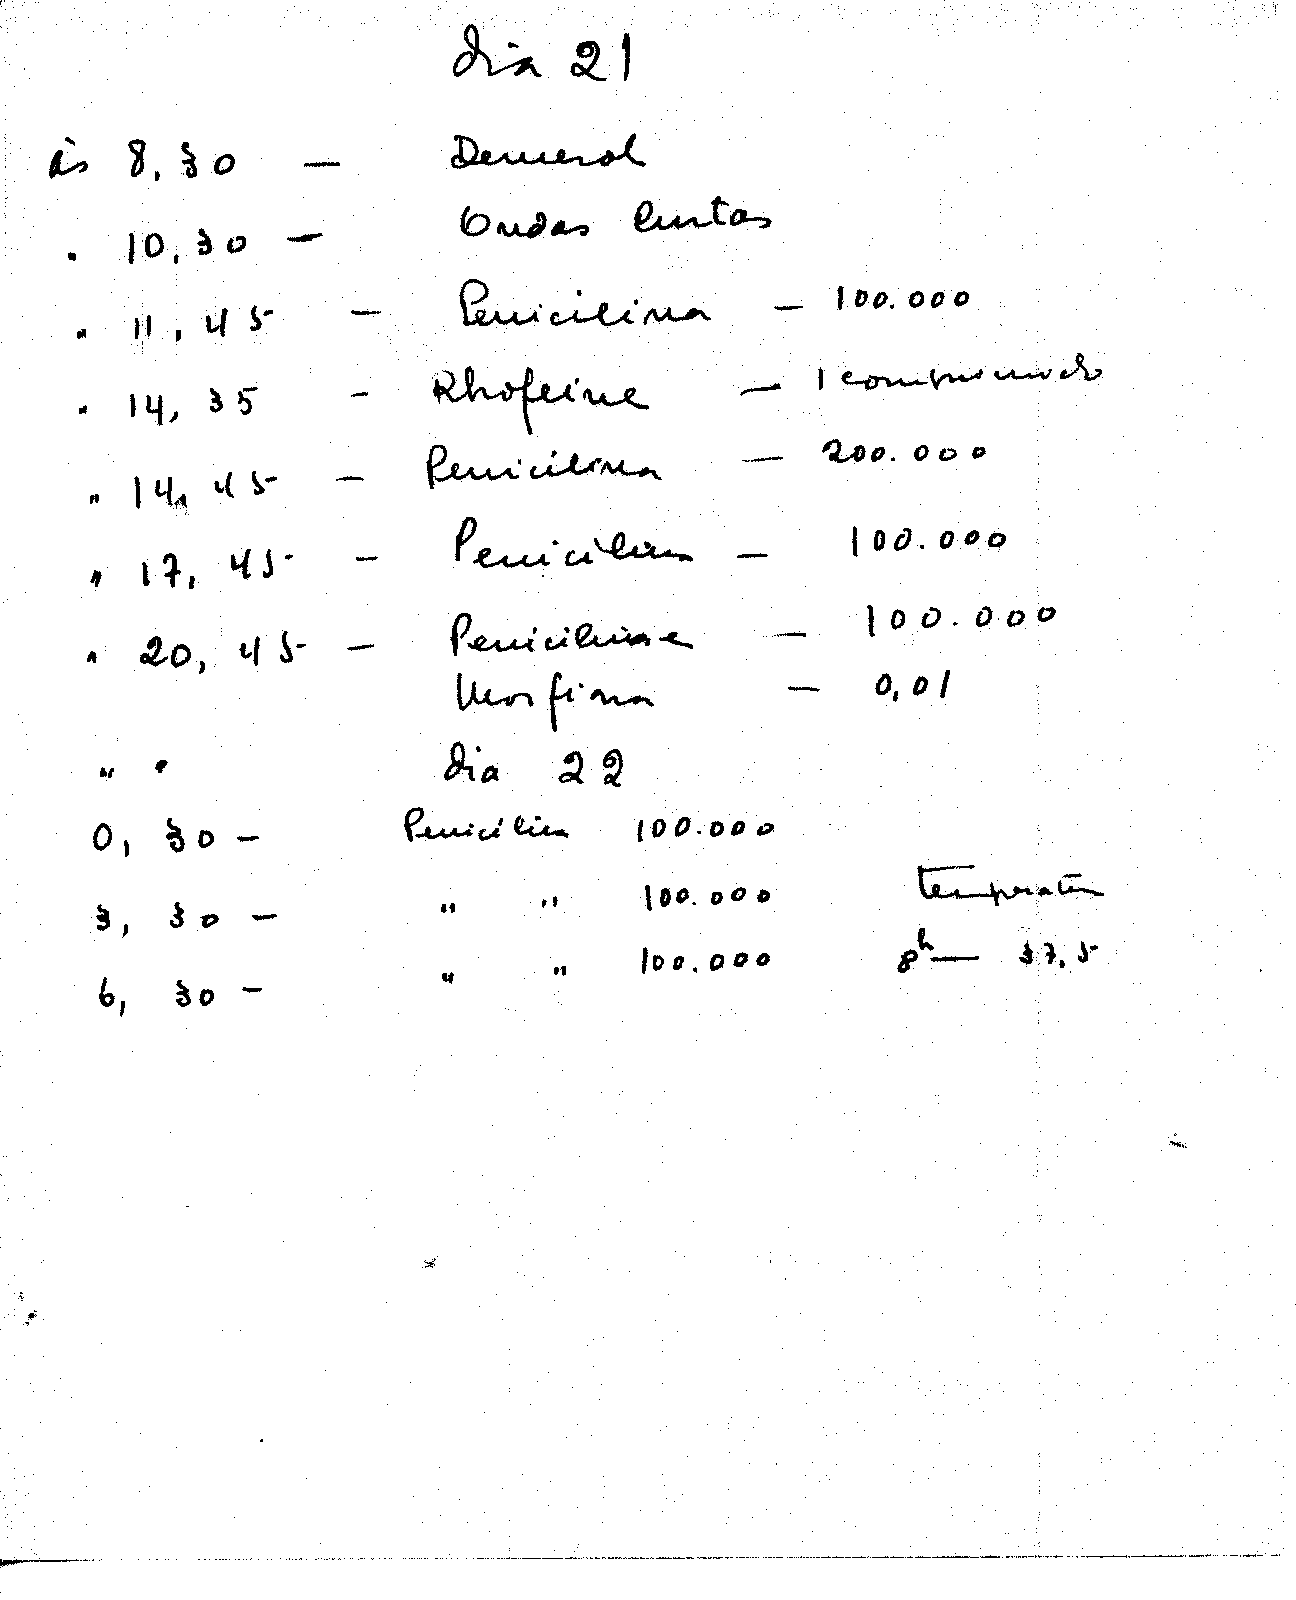 dia 21
às 8,30 — Demerol
" 10,30 — Ondas Curtas
" 11,45 — Penicilina — 100.000
" 14,35 — Rhofeine — 1 comprimido
" 14,45 — Penicilina — 200.000
" 17,45 — Penicilina — 100.000
" 20,45 — Penicilina — 100.000
Morfina — 0,01
" "
dia 22
0,30 — Penicilina 100.000
3,30 — " " 100.000 temperatura
6,30 — " " 100.000 8h — 37,5